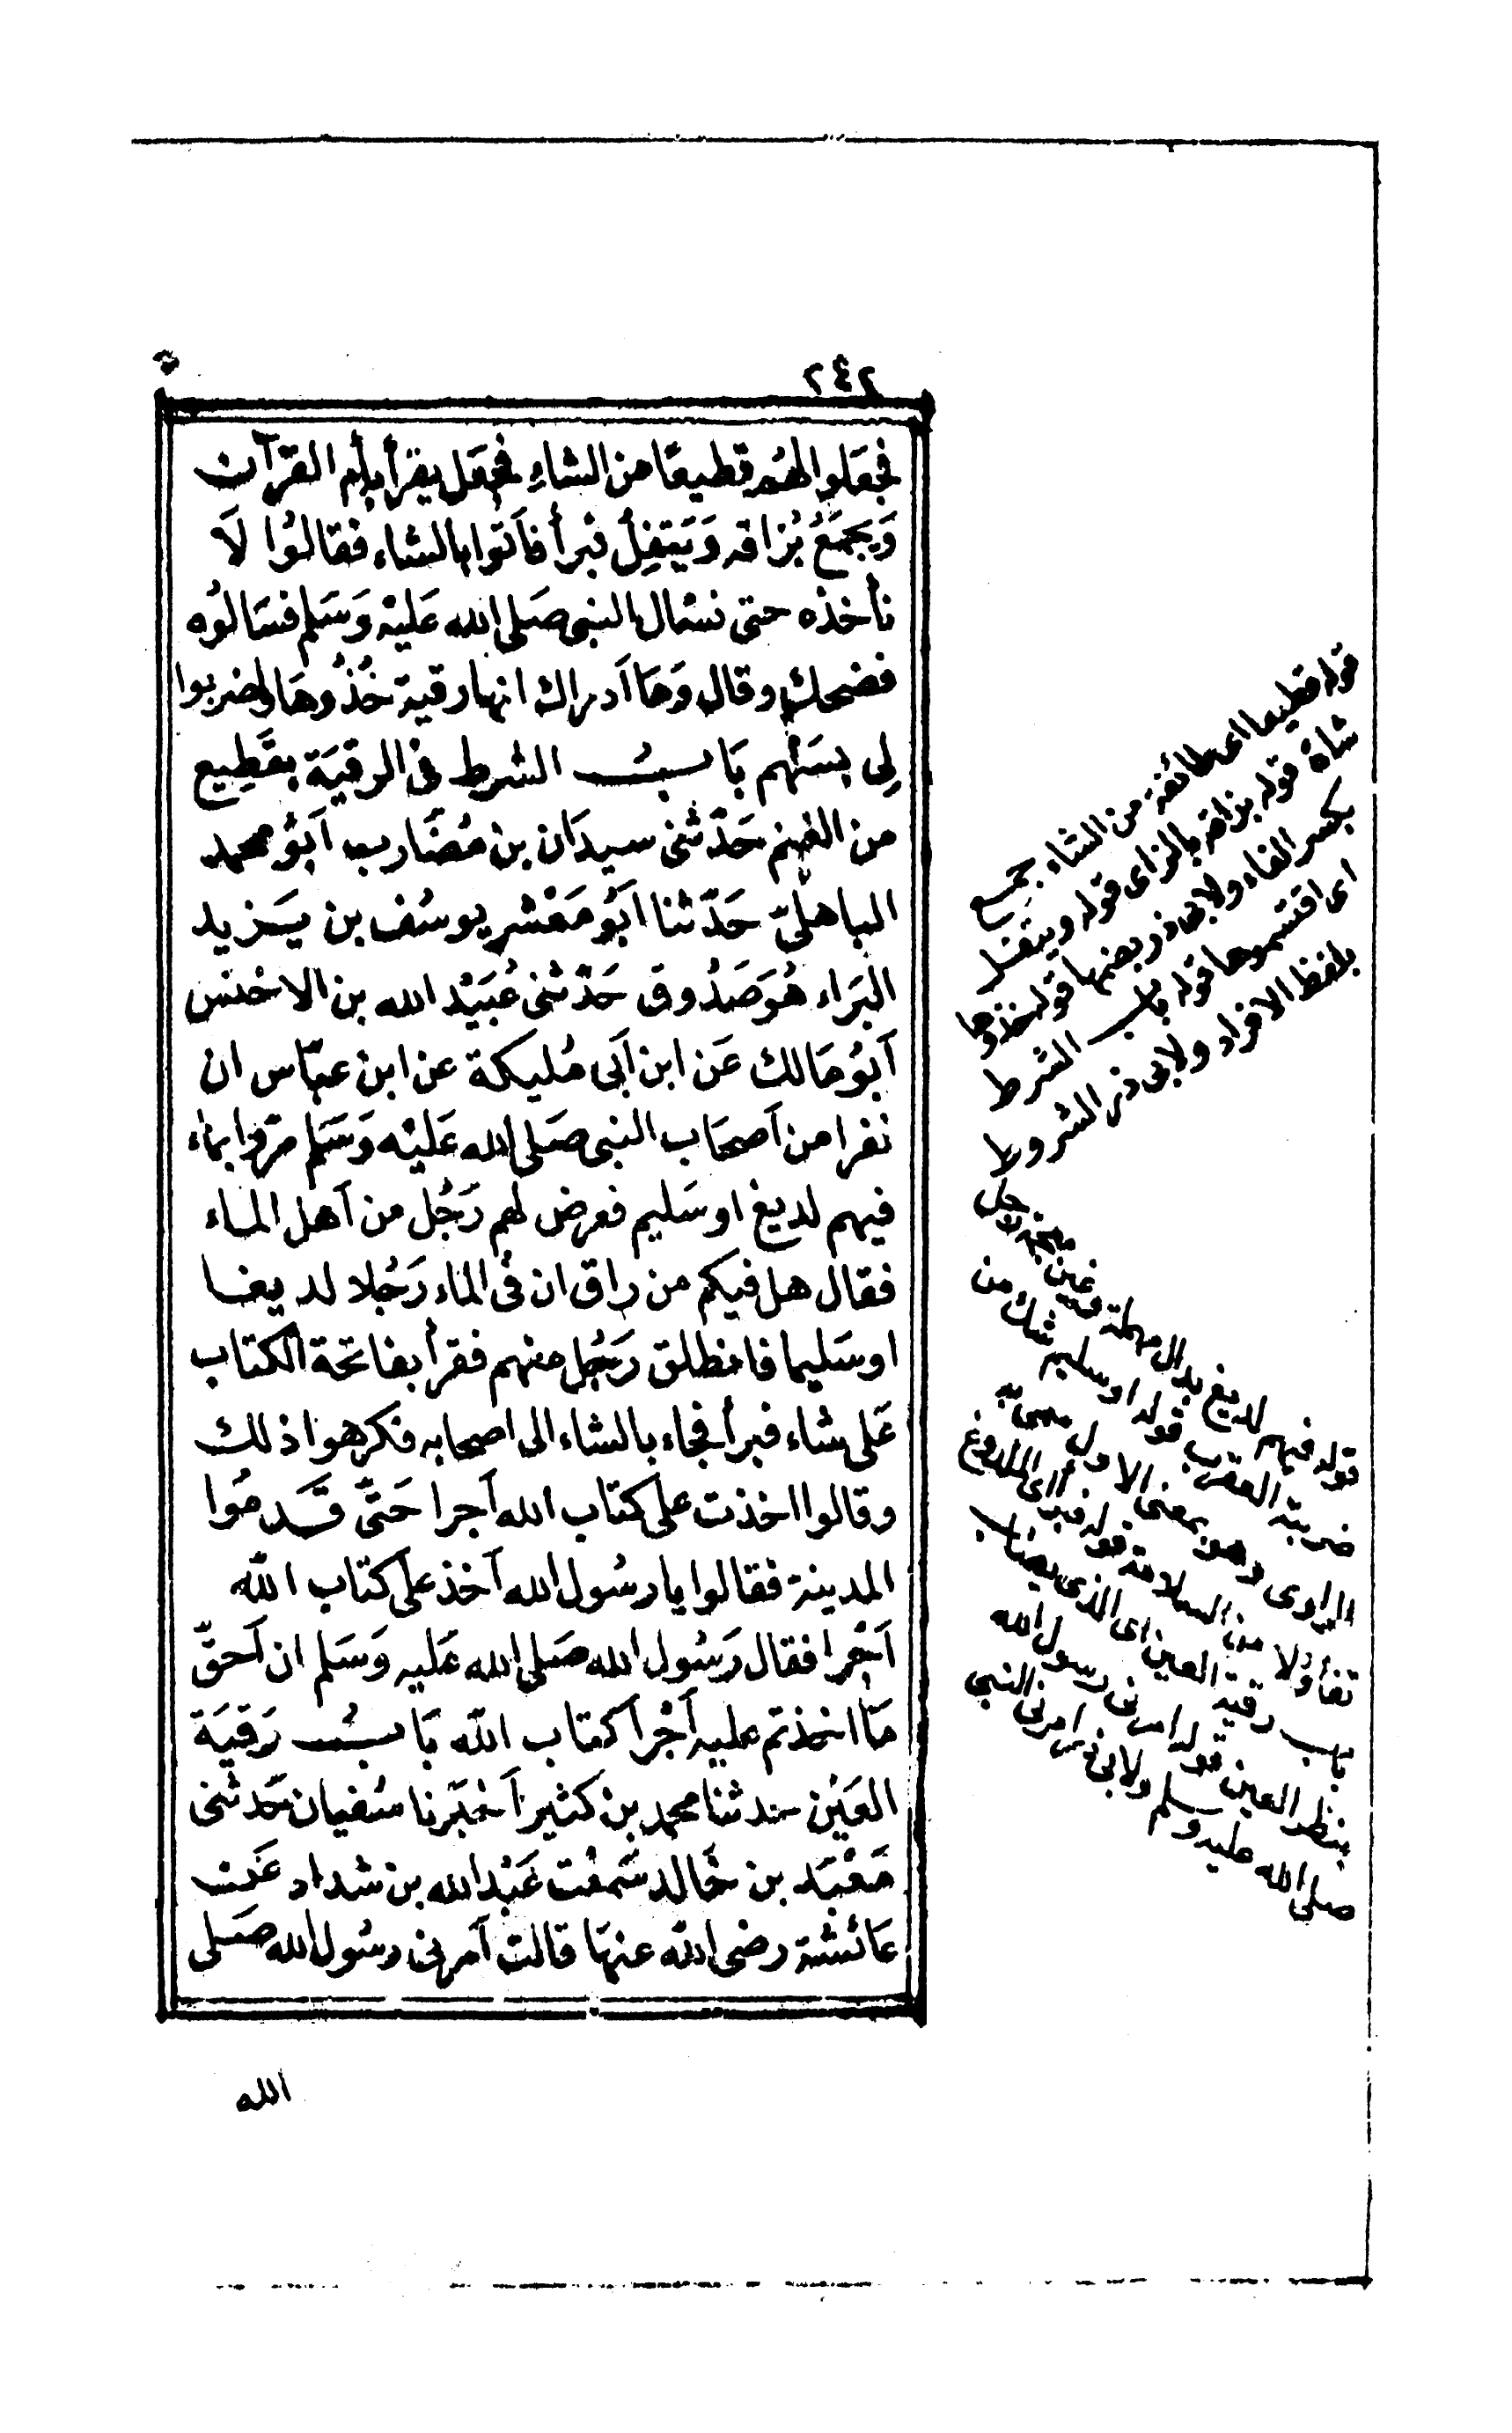 ٢٤٢
فجعلوا لهم قطيعًا من الشاءِ فجعَل يقرأ بأم القرآن
وَيجمَعُ بُزاقه وَيَتفِلُ فبرأ فأتَوا بالشاء فقالوُا لَا
نأخذه حتى نسْال النبى صَلى الله عَليْه وَسَلم فسَالوُه
فضحك وقال وَمَا أدراك انها رقية خُذُوهَا واضربوا
لِى بسَهْم بَابُ الشرط فى الرقيَة بقَطِيع
من الغنم حَدّثنى سيدَان بن مُضَارب اَبوُ محمد
الباهلىّ حَدّثنا اَبوُ مَعْشر يوسُف بن يَزيد
البَراء هُوَ صَدُوق حَدّثنى عُبَيْد الله بن الاخْنس
اَبوُ مَالك عَن ابن اَبى مُليكة عن ابن عبّاس ان
نفرا من اَصحَاب النبى صَلى الله عَليْه وَسَلم مرّوا بماء
فيهم لديغ او سَليم فعرض لهم رَجُل من اَهل الماء
فقال هل فيكم من راق ان فى الماء رَجُلا لديغا
او سَليما فانطلق رَجُل منهم فقرأ بفاتحة الكتاب
عَلى شاء فبرأ فجاء بالشاء الى اصحابه فكرهوا ذلك
وقالوا اخذت على كتاب الله اَجرا حَتىّ قَدمُوا
المدينة فقالوا يا رسُول الله اَخذ على كتاب الله
اَجْرا فقال رَسُول الله صَلى الله عَليه وَسَلم ان اَحقّ
مَا اخذتم عليه اَجْرا كتاب الله بَابُ رَقيَة
العَيْن حدثنا محمد بن كثير اَخْبَرنا سُفيان حَدثنى
مَعْبَد بن خَالد سَمعْت عَبْد الله بن شداد عَن
عَائشة رضى الله عنهَا قالت اَمرنى رسُول الله صَلى
الله
قوله قطيعا اى طائفة من الشاء جمع
شاة قوله بزاقه بالزاى قوله ويتفل
بكسر الفاء ولابى ذر بضمها قوله خذوها
اى اقتسموها قوله باب الشرط
بلفظ الافراد ولابى ذر الشروط
قوله فيهم لديغ بدال مهملة وغين معجمة رجل
ضربته العقرب قوله او سليم شك من
الراوى وهو بمعنى الاول سمى به
تفاؤلا من السلامة قوله فبرأ اى الملدوغ
باب رقية العين اى الذى يصاب
بنظر العين قوله امرنى رسول الله
صلى الله عليه وسلم ولابى ذر امرنى النبى